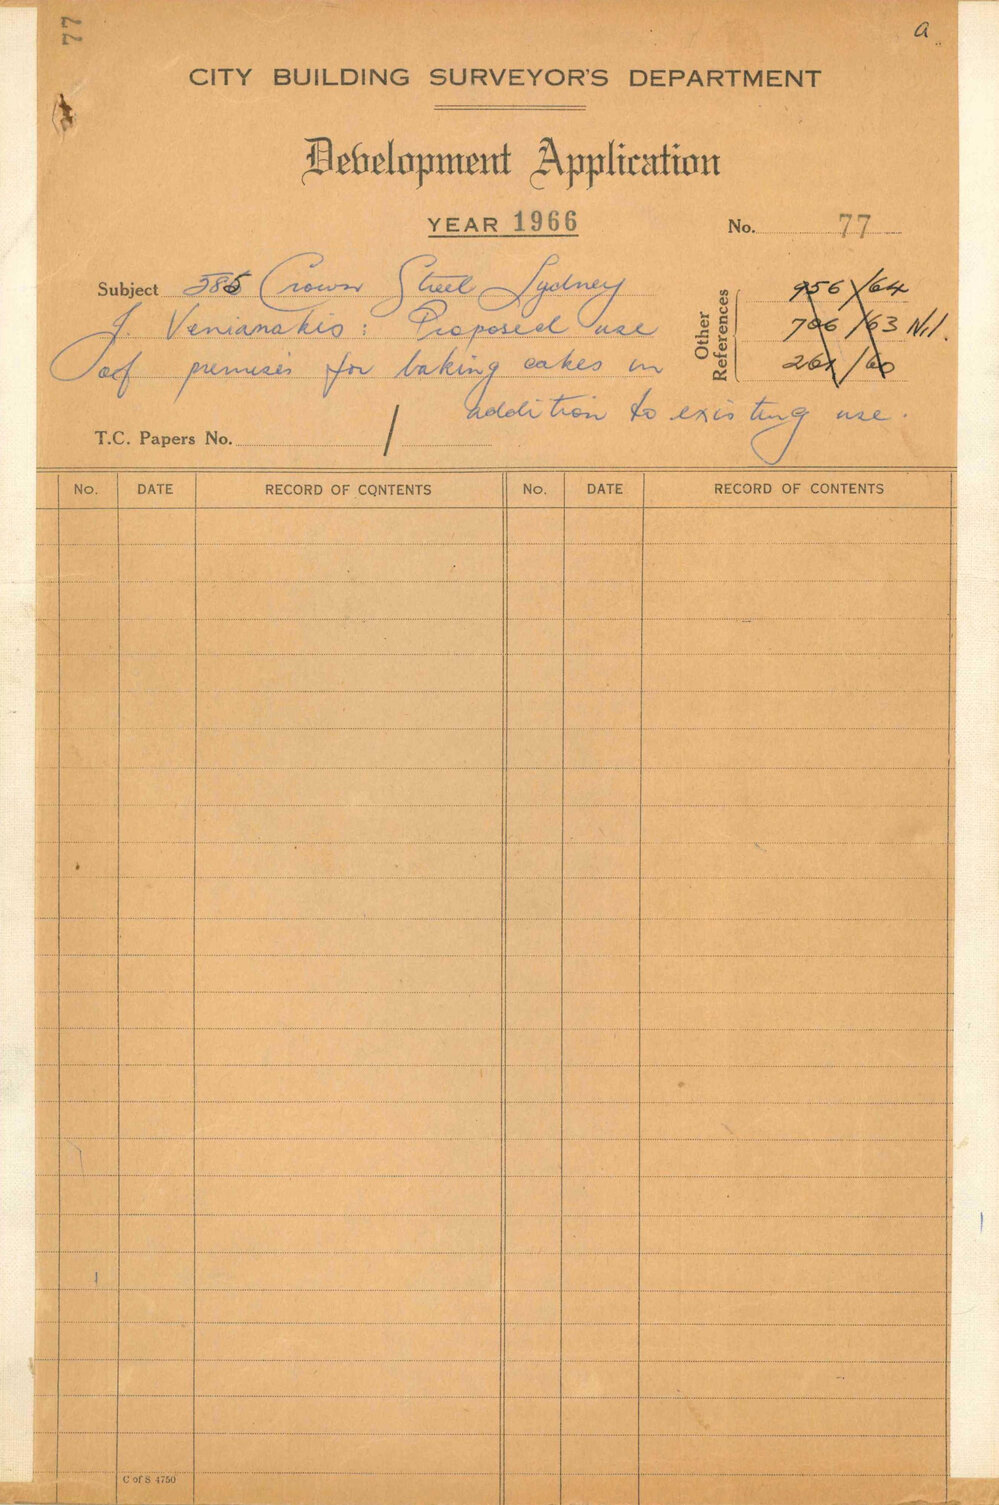 77
a
CITY BUILDING SURVEYOR'S DEPARTMENT
Development Application
YEAR 1966
No. 77
Subject 585 Crown Street Sydney
J. Venianakis: Proposed use
of premises for baking cakes in
addition to existing use.
Other References
956/64
706/63 Nil.
261/60
T.C. Papers No. /
No. DATE RECORD OF CONTENTS No. DATE RECORD OF CONTENTS
C of S 4750